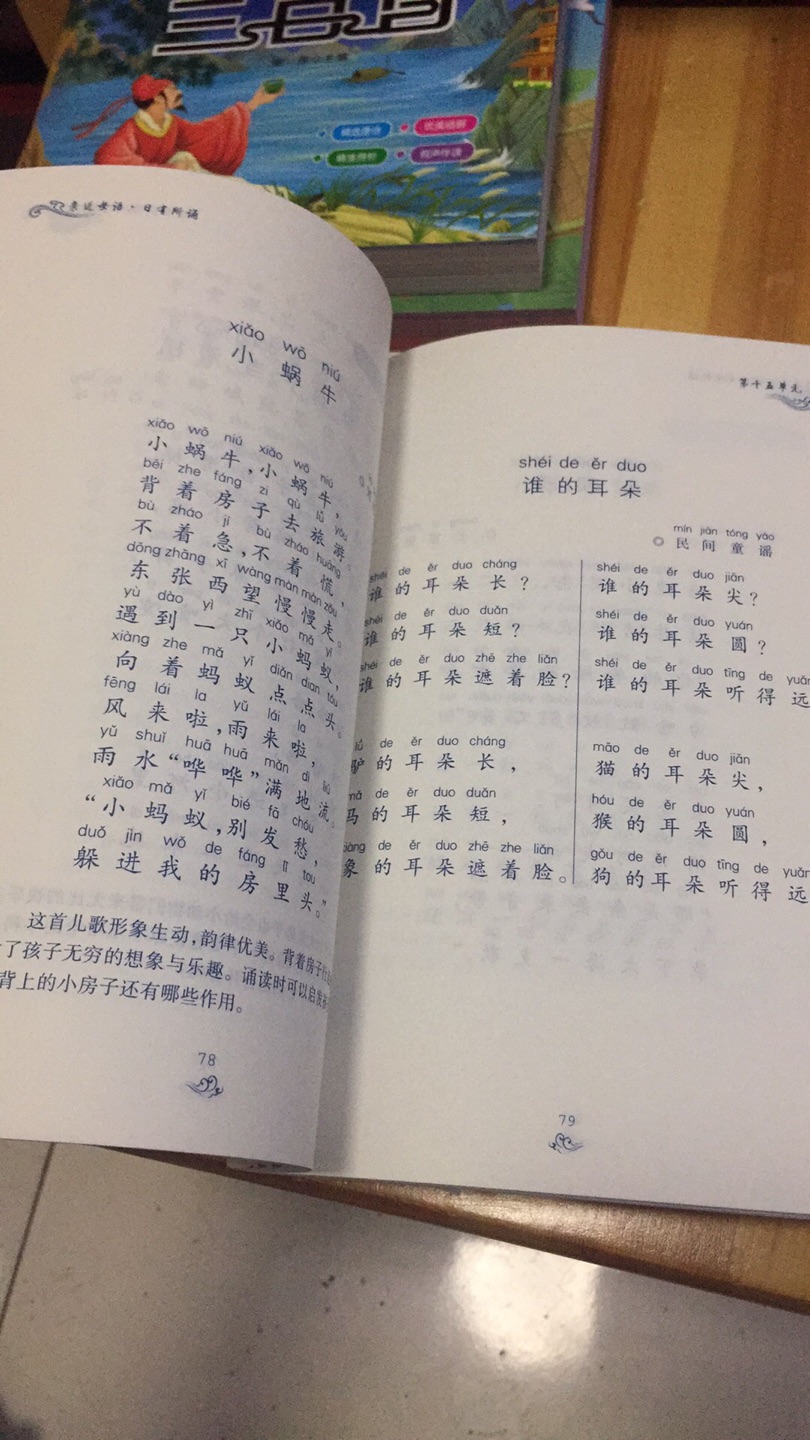 三百首
精选唐诗
优美插图
精准赏析
有声伴读
亲近母语·日有所诵
xiǎo wō niú
小蜗牛
xiǎo wō niú xiǎo wō niú
小蜗牛,小蜗牛,
bēi zhe fáng zi qù lǚ yóu
背着房子去旅游。
bù zháo jí bù zháo huāng
不着急,不着慌,
dōng zhāng xī wàng màn màn zǒu
东张西望慢慢走。
yù dào yì zhī xiǎo mǎ yǐ
遇到一只小蚂蚁,
xiàng zhe mǎ yǐ diǎn diǎn tóu
向着蚂蚁点点头。
fēng lái la yǔ lái la
风来啦,雨来啦,
yǔ shuǐ huā huā mǎn dì liú
雨水“哗哗”满地流。
xiǎo mǎ yǐ bié fā chóu
“小蚂蚁,别发愁,
duǒ jìn wǒ de fáng lǐ tou
躲进我的房里头。”
这首儿歌形象生动,韵律优美。背着房子
了孩子无穷的想象与乐趣。诵读时可以启发
背上的小房子还有哪些作用。
78
第十五单元
shéi de ěr duo
谁的耳朵
mín jiān tóng yáo
民间童谣
shéi de ěr duo cháng
谁的耳朵长?
shéi de ěr duo duǎn
谁的耳朵短?
shéi de ěr duo zhē zhe liǎn
谁的耳朵遮着脸?
de ěr duo cháng
驴的耳朵长,
mǎ de ěr duo duǎn
马的耳朵短,
xiàng de ěr duo zhē zhe liǎn
象的耳朵遮着脸。
shéi de ěr duo jiān
谁的耳朵尖?
shéi de ěr duo yuán
谁的耳朵圆?
shéi de ěr duo tīng de yuǎn
谁的耳朵听得远
māo de ěr duo jiān
猫的耳朵尖,
hóu de ěr duo yuán
猴的耳朵圆,
gǒu de ěr duo tīng de yuǎn
狗的耳朵听得远
79